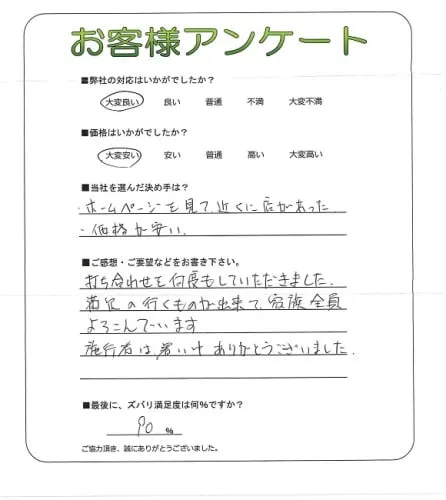 お客様アンケート
■弊社の対応はいかがでしたか?
大変良い 良い 普通 不満 大変不満
■価格はいかがでしたか?
大変安い 安い 普通 高い 大変高い
■当社を選んだ決め手は?
・ホームページを見て、近くに店があった
・価格が安い
■ご感想・ご要望などをお書き下さい。
打ち合わせを何度もしていただきました。
満足の行くものが出来て、家族全員
よろこんでいます
施行者は、暑い中ありがとうございました。
■最後に、ズバリ満足度は何%ですか?
90 %
ご協力頂き、誠にありがとうございました。